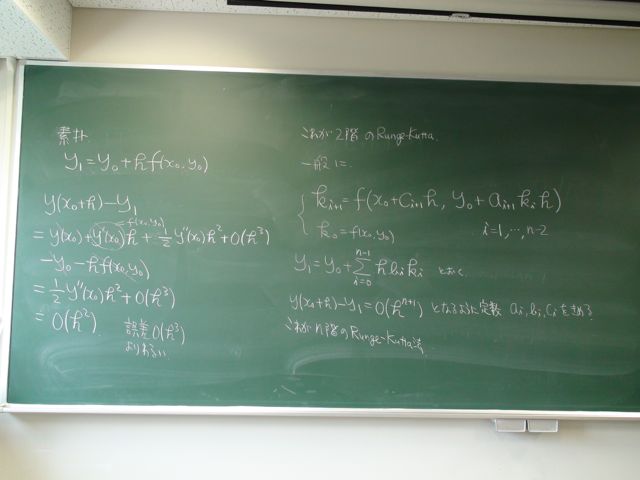 素朴
y₁ = y₀ + h f(x₀, y₀)
y(x₀+h) − y₁
= f(x₀, y₀)
= y(x₀) + y'(x₀)h + ½ y''(x₀)h² + O(h³)
− y₀ − h f(x₀, y₀)
= ½ y''(x₀)h² + O(h³)
= O(h²)
誤差 O(h³)
よりわるい
これが2階のRunge-Kutta.
一般に
k_{i+1} = f(x₀ + c_{i+1} h, y₀ + a_{i+1} k_i h)
k₀ = f(x₀, y₀) i=1, …, n−2
y₁ = y₀ + Σ_{i=0}^{n−1} h b_i k_i とおく.
y(x₀+h) − y₁ = O(h^{n+1}) となるように定数 a_i, b_i, c_i をきめる
これがn階のRunge-Kutta法